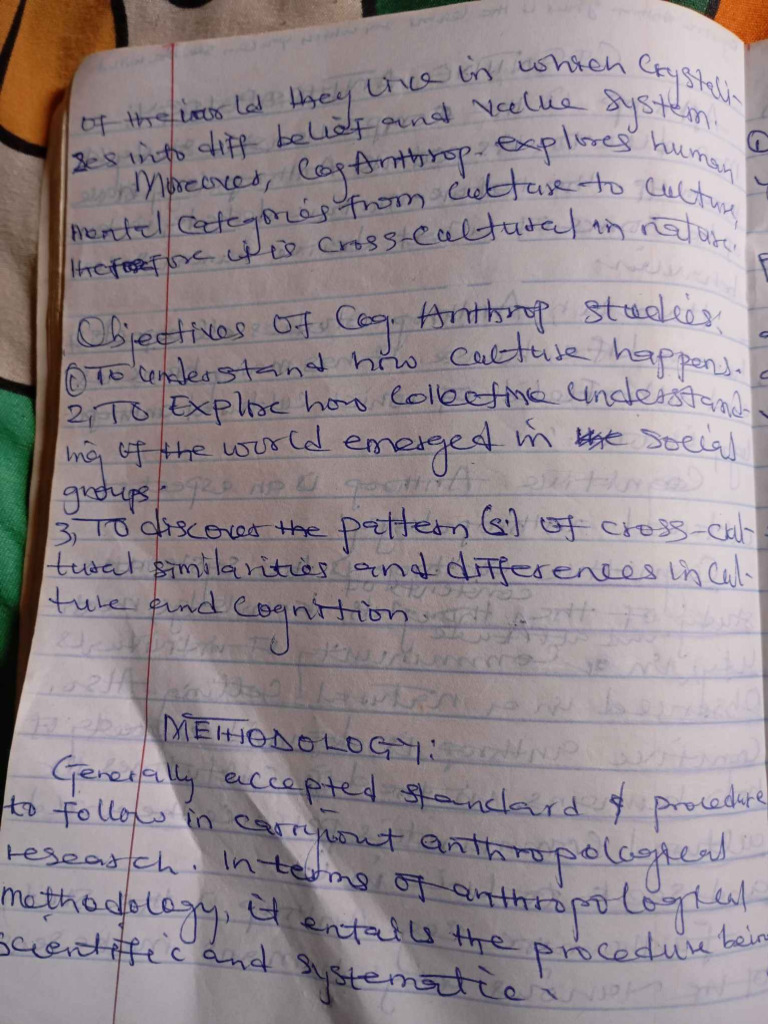 of the world they live in which crystali-
ses into diff belief and value system.
Moreover, Cog Anthrop. explores human
mental categories from culture to culture,
therefore it is cross-cultural in nature.
Objectives of Cog. Anthrop studies:
① To understand how culture happens.
2, To Explore how collective understand-
ing of the world emerged in the social
groups.
3, To discover the pattern (s) of cross-cul-
tural similarities and differences in cul-
ture and cognition.
METHODOLOGY:
Generally accepted standard & procedure
to follow in carryout anthropological
research. In terms of anthropological
methodology, it entails the procedure being
scientific and systematic.